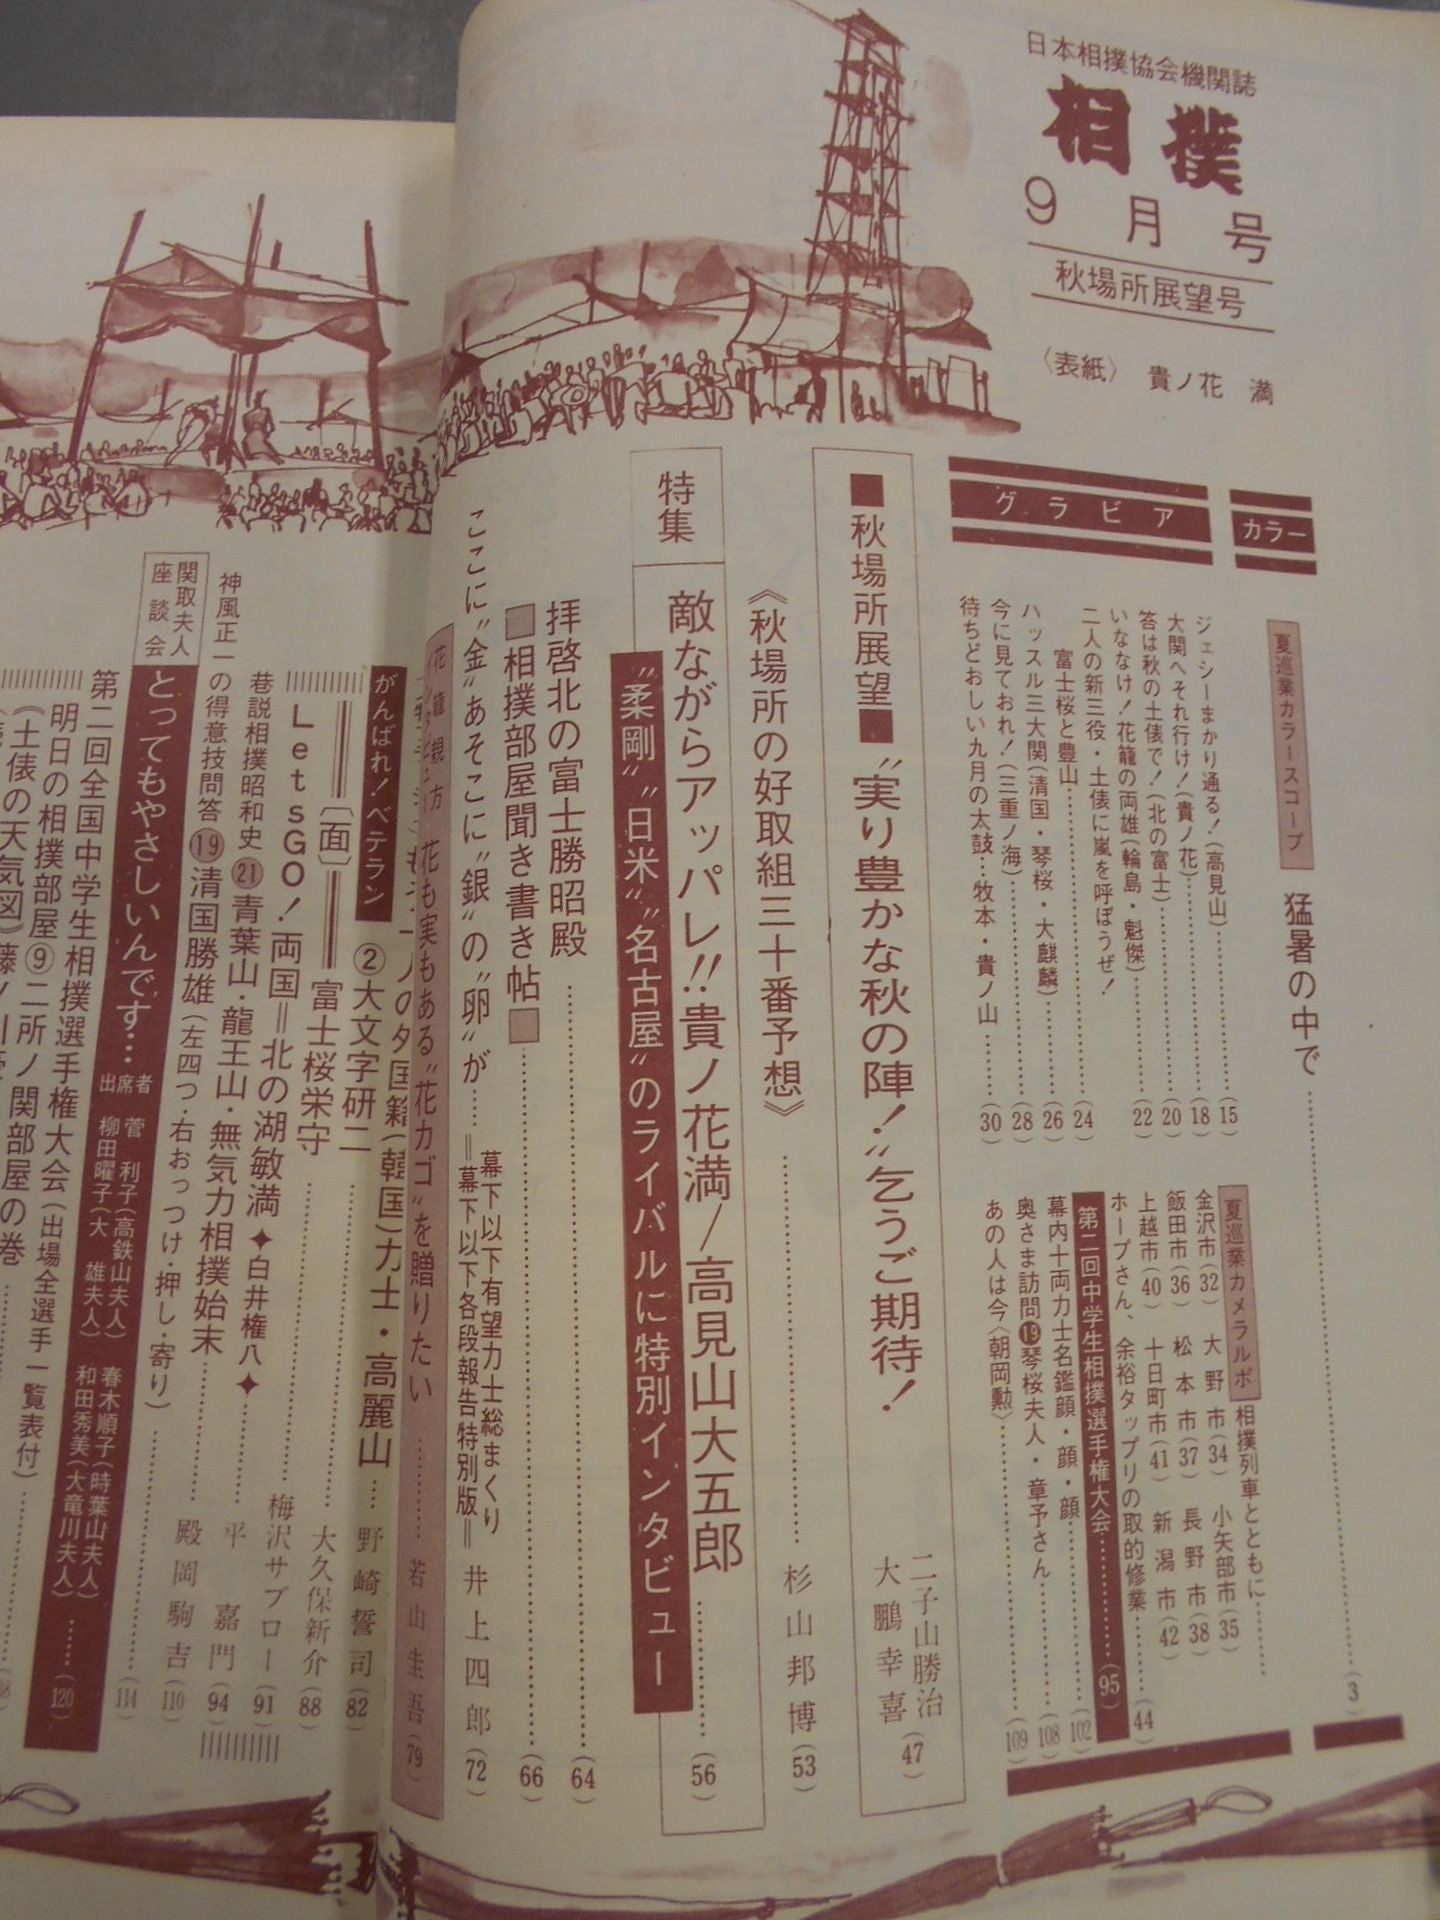 日本相撲協会機関誌
相撲
9月号
秋場所展望号
〈表紙〉 貴ノ花 満
カラー
グラビア
夏巡業カラースコープ 猛暑の中で……(3)
ジェシーまかり通る!(高見山)……(15)
大関へそれ行け!(貴ノ花)……(18)
答は秋の土俵で!(北の富士)……(20)
いななけ!花籠の両雄(輪島・魁傑)……(22)
二人の新三役・土俵に嵐を呼ぼうぜ!
富士桜と豊山……(24)
ハッスル三大関(清国・琴桜・大麒麟)……(26)
今に見ておれ!(三重ノ海)……(28)
待ちどおしい九月の太鼓…牧本・貴ノ山……(30)
夏巡業カメラルポ 相撲列車とともに……
金沢市(32) 大野市(34) 小矢部市(35)
飯田市(36) 松本市(37) 長野市(38)
上越市(40) 十日町市(41) 新潟市(42)
ホープさん、余裕タップリの取的修業……(44)
第二回中学生相撲選手権大会……(95)
幕内十両力士名鑑顔・顔・顔……(102)
奥さま訪問⑲琴桜夫人・章予さん……(108)
あの人は今〈朝岡勲〉……(109)
■秋場所展望■〝実り豊かな秋の陣!〟乞うご期待!
二子山勝治
大鵬幸喜
(47)
《秋場所の好取組三十番予想》……杉山邦博(53)
特集
敵ながらアッパレ!!貴ノ花満/高見山大五郎……(56)
〝柔剛〟〝日米〟〝名古屋〟のライバルに特別インタビュー
拝啓北の富士勝昭殿……(64)
■相撲部屋聞き書き帖■……(66)
ここに〝金〟あそこに〝銀〟の〝卵〟が……
幕下以下有望力士総まくり
=幕下以下各段報告特別版=
井上四郎(72)
花も実もある〝花カゴ〟を贈りたい……若山圭吾(79)
がんばれ!ベテラン ②大文字研二
力士・高麗山……野崎誓司(82)
〔面〕富士桜栄守……大久保新介(88)
LetsGO!両国=北の湖敏満……梅沢サブロー(91)
巷説相撲昭和史㉑青葉山・龍王山・無気力相撲始末……平 嘉門(94)
✦白井権八✦
神風正一の得意技問答⑲清国勝雄(左四つ・右おっつけ・押し・寄り)……殿岡駒吉(110)
(114)
関取夫人
座談会
とってもやさしいんです…
出席者 菅 利子(高鉄山夫人) 春木順子(時葉山夫人)
柳田曜子(大 雄夫人) 和田秀美(大竜川夫人)
……(120)
第二回全国中学生相撲選手権大会(出場全選手一覧表付)
明日の相撲部屋⑨二所ノ関部屋の巻
(土俵の天気図)